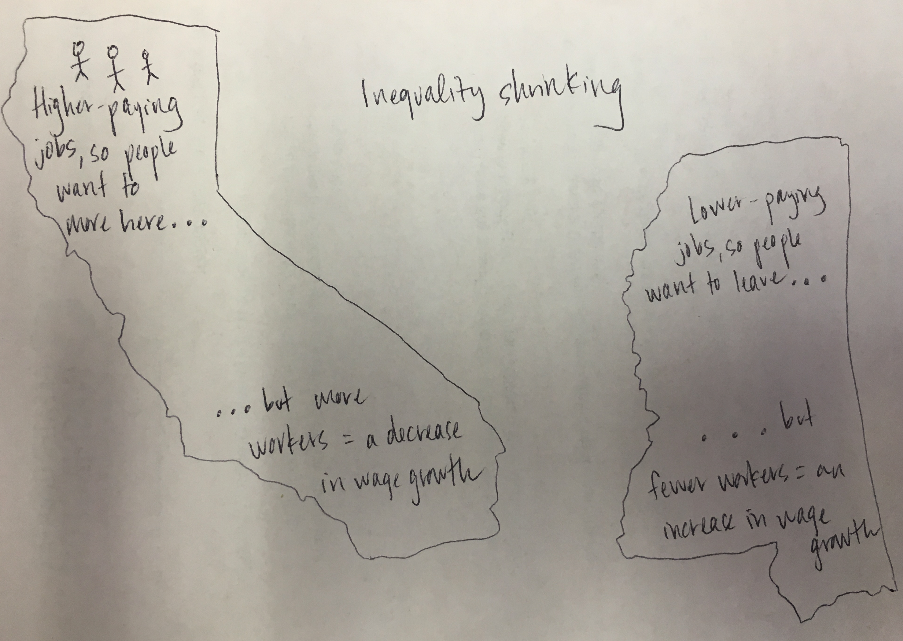 Inequality shrinking
Higher-paying
jobs, so people
want to
move here...
...but more
workers = a decrease
in wage growth
Lower-paying
jobs, so people
want to leave...
....but
fewer workers = an
increase in wage
growth